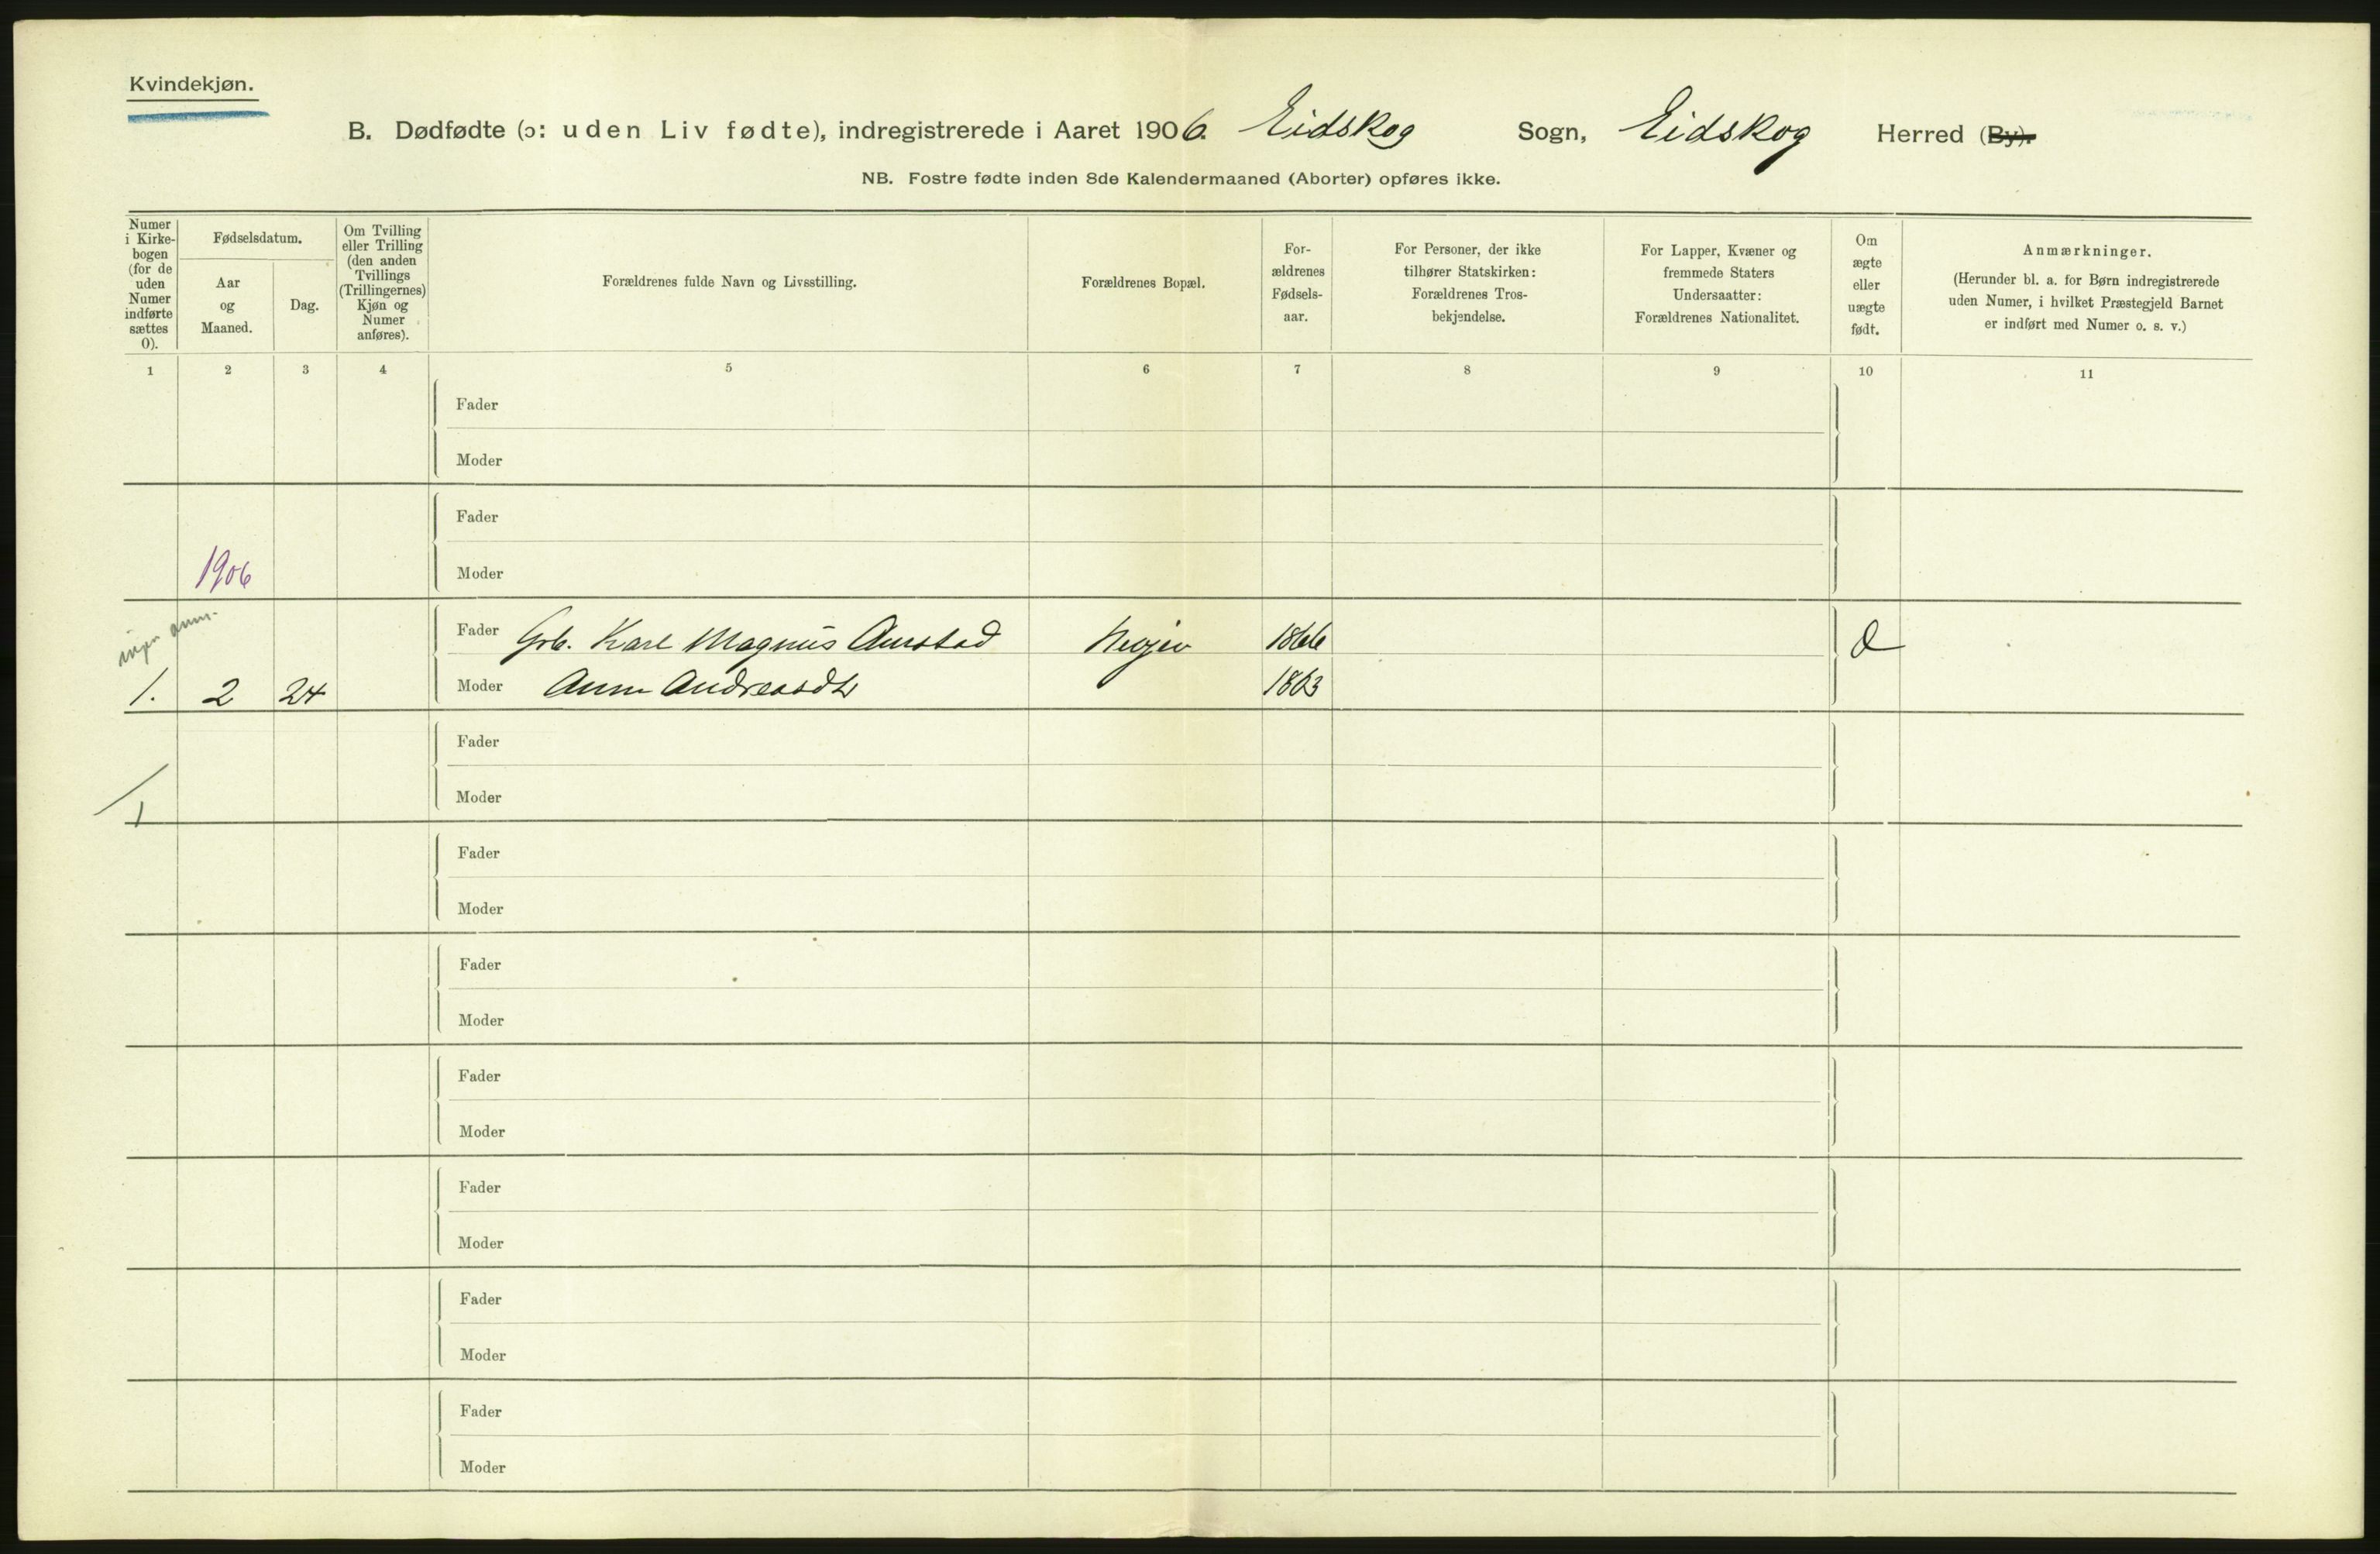 Kvindekjøn.
B. Dødfødte (ɔ: uden Liv fødte), indregistrerede i Aaret 1906. Eidskog Sogn, Eidskog Herred (By).
NB. Fostre fødte inden 8de Kalendermaaned (Aborter) opføres ikke.
Numer i Kirke-
bogen
(for de
uden
Numer
indførte
sættes
0).
Fødselsdatum.
Aar
og
Maaned.
Dag.
Om Tvilling
eller Trilling
(den anden
Tvillings
(Trillingernes)
Kjøn og
Numer
anføres).
Forældrenes fulde Navn og Livsstilling.
Forældrenes Bopæl.
For-
ældrenes
Fødsels-
aar.
For Personer, der ikke
tilhører Statskirken:
Forældrenes Tros-
bekjendelse.
For Lapper, Kvæner og
fremmede Staters
Undersaatter:
Forældrenes Nationalitet.
Om
ægte
eller
uægte
født.
Anmærkninger.
(Herunder bl. a. for Børn indregistrerede
uden Numer, i hvilket Præstegjeld Barnet
er indført med Numer o. s. v.)
1 2 3 4 5 6 7 8 9 10 11
Fader
Moder
Fader
1906 Moder
Fader Grb. Karl Magnus 1866
1. 2 24 Moder 1863
Fader
1 Moder
Fader
Moder
Fader
Moder
Fader
Moder
Fader
Moder
Fader
Moder
Fader
Moder